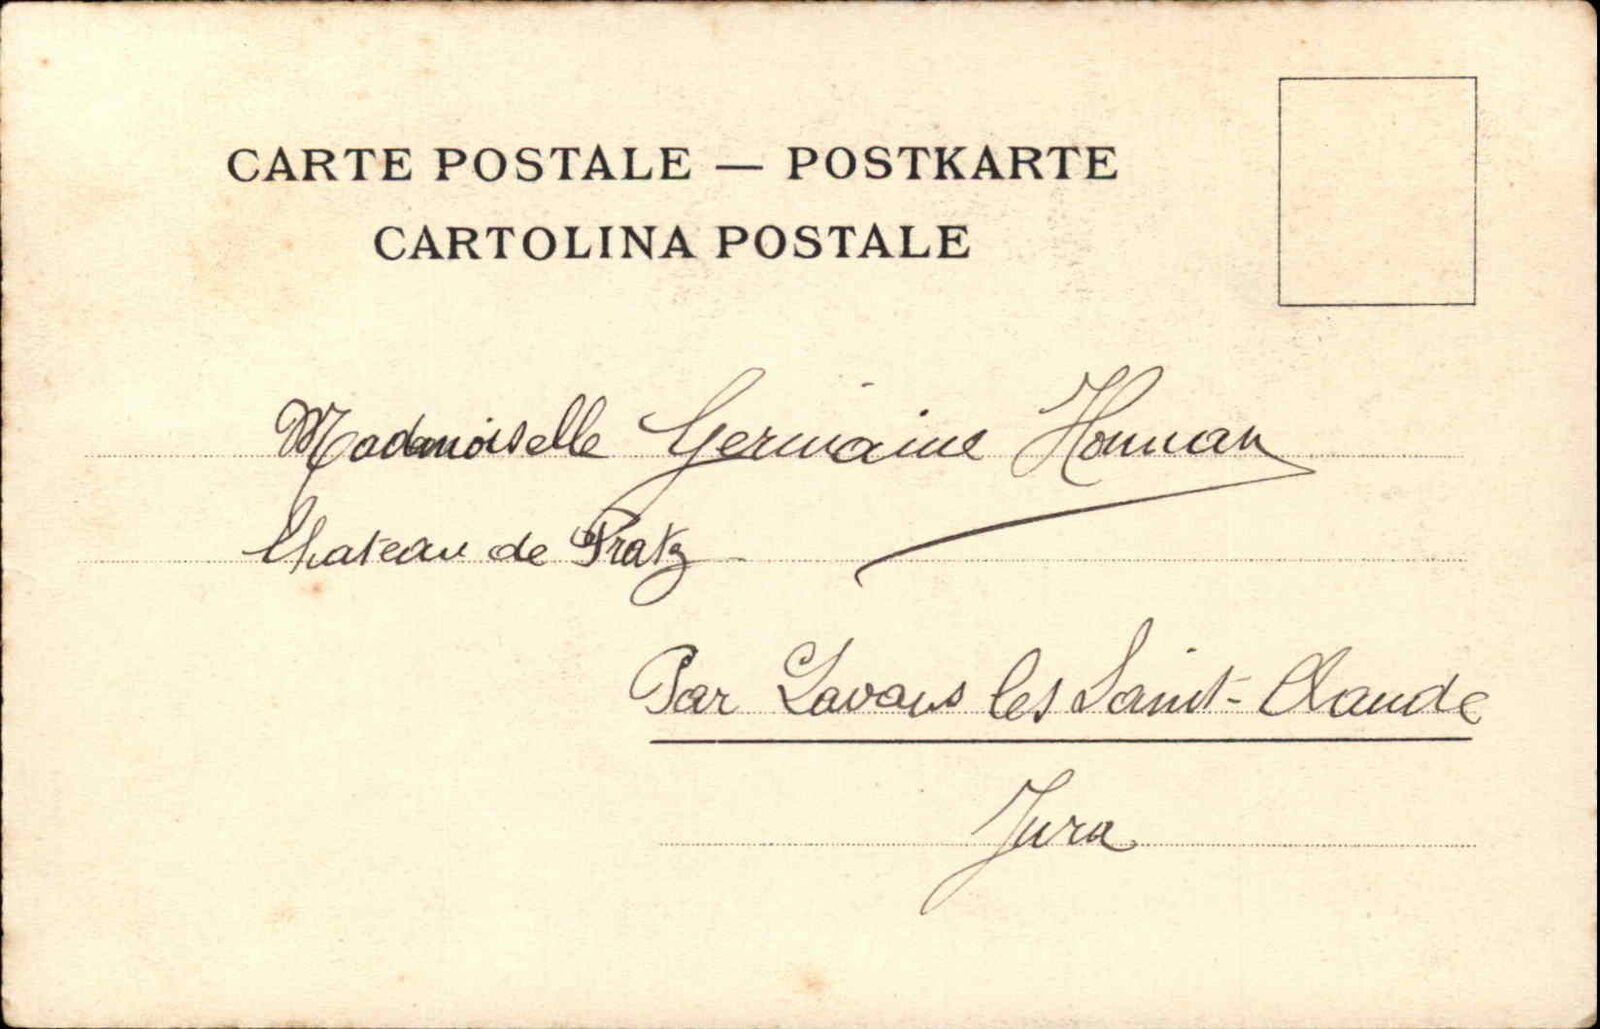 CARTE POSTALE — POSTKARTE
CARTOLINA POSTALE
Mademoiselle Germaine
Chateau de Pratz
Par Lavans les Saint-Claude
Jura